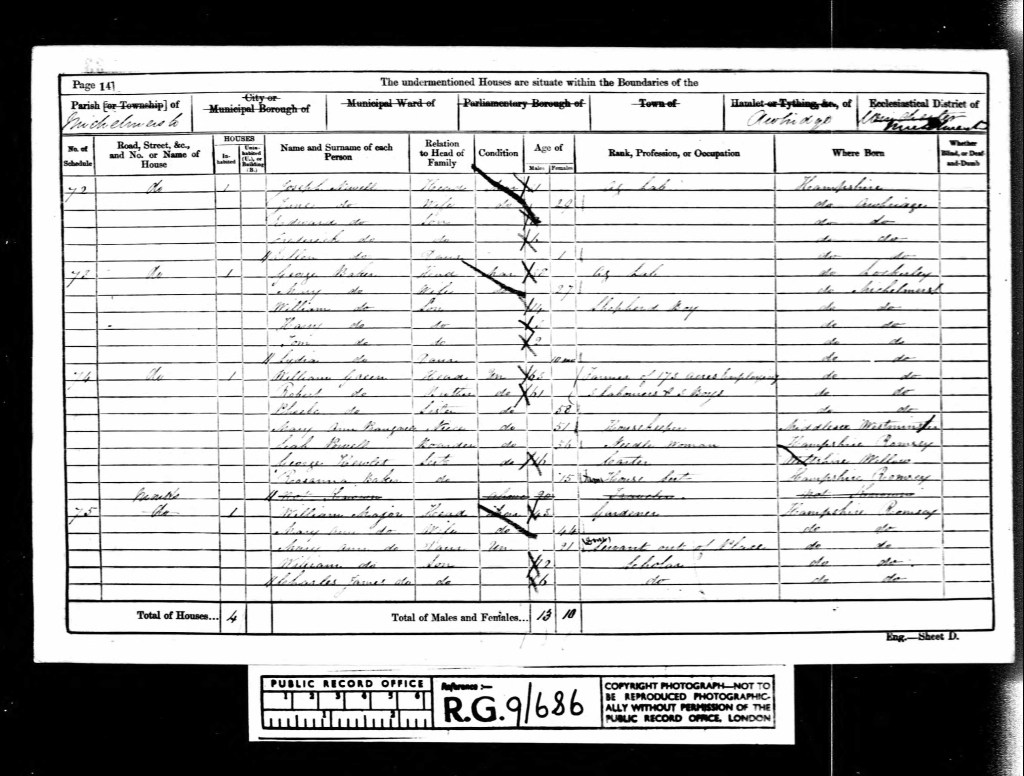 Page 14]
The undermentioned Houses are situate within the Boundaries of the
Parish [or Township] of
City or Municipal Borough of
Municipal Ward of
Parliamentary Borough of
Town of
Hamlet or Tything, &c., of
Ecclesiastical District of
Michelmersh
Awbridge
No. of Schedule
Road, Street, &c., and No. or Name of House
HOUSES
Inhabited
Uninhabited (U.), or Building (B.)
Name and Surname of each Person
Relation to Head of Family
Condition
Age of
Males
Females
Rank, Profession, or Occupation
Where Born
Whether Blind, or Deaf-and-Dumb
72 do 1 Joseph Newell Head Ag Lab Hampshire
Jane do Wife do 29 do Awbridge
Edward do Son do do
Frederick do do do do
Ellen do Daur 1 do do
73 do 1 George Baker Head Mar Ag Lab do Lockerley
Mary do Wife 27 do Michelmersh
William do Son Shepherd Boy do do
Harry do do do do
Tom do do do do
Lydia do Daur 10 mo do do
74 do 1 William Green Head Un 63 Farmer of 173 acres Employing do do
Robert do Brother do 61 5 Labourers & 3 Boys do do
do Sister do 58 do do
Mary Ann Niece do 51 Housekeeper Middlesex Westminster
Leah Boarder do 56 Needle Woman Hampshire Romsey
George Servt do 16 Carter Wiltshire Wellow
Rosanna Baker do 15 House Servt Hampshire Romsey
Not Known Not Known
75 do 1 William Major Head 43 Gardener Hampshire Romsey
Mary Ann do Wife do 44 do do
Mary Ann do Daur Un 21 Servant out of Place do do
William do Son 12 Scholar do do
Charles James do do 6 do do do
Total of Houses... 4
Total of Males and Females... 13 10
Eng.—Sheet D.
PUBLIC RECORD OFFICE
1 2 3 4 5 6
1 2
Reference :—
R.G. 9/686
COPYRIGHT PHOTOGRAPH—NOT TO
BE REPRODUCED PHOTOGRAPHIC-
ALLY WITHOUT PERMISSION OF THE
PUBLIC RECORD OFFICE, LONDON